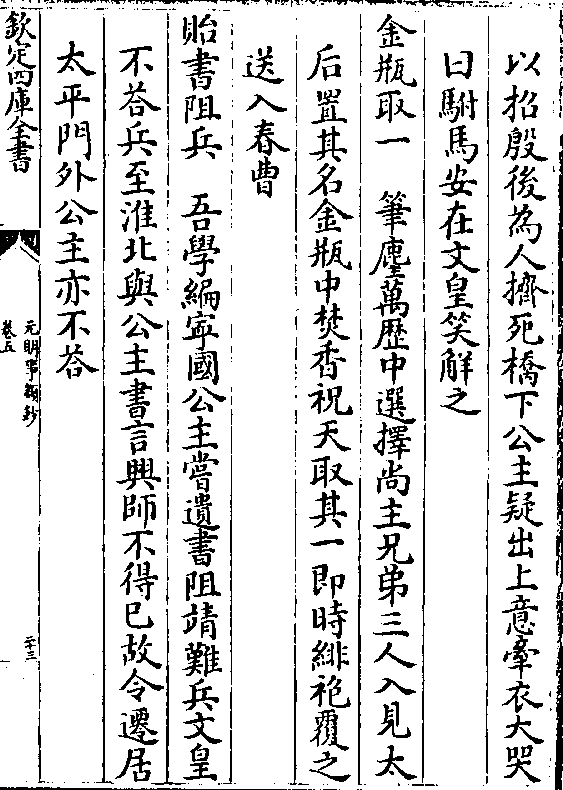 以招殷後為人擠死橋下公主疑出上意牽衣大哭
曰駙馬安在文皇笑解之
金瓶取一　筆麈萬歷中選擇尚主兄弟三人入見太
后置其名金瓶中焚香祝天取其一即時緋袍覆之
送入春曹
貽書阻兵　吾學編寧國公主嘗遺書阻靖難兵文皇
不荅兵至淮北與公主書言興師不得已故令遷居
太平門外公主亦不荅
欽定四庫全書
元明事類鈔
卷五
二十三